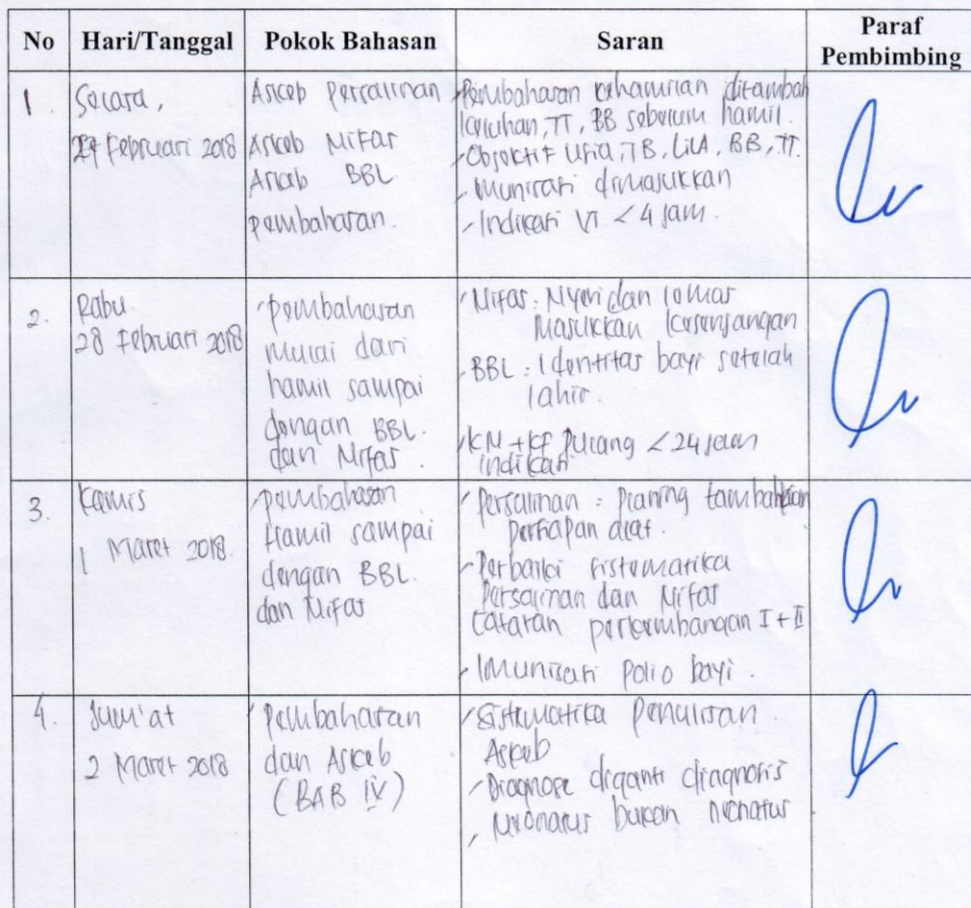 No Hari/Tanggal Pokok Bahasan Saran Paraf Pembimbing
1. Selasa, 27 Februari 2018
Askeb Persalinan
Askeb Nifas
Askeb BBL
pembahasan.
- Pembahasan kehamilan ditambah
keluhan, TT, BB sebelum hamil.
- Objektif Usia, TB, LilA, BB, TT.
- Imunisasi dimasukkan
- Indikasi VT < 4 jam.
2. Rabu
28 Februari 2018
- pembahasan
mulai dari
hamil sampai
dengan BBL.
dan Nifas.
- Nifas : Nyeri dan lemas
Masukkan kesenjangan
- BBL : Identitas bayi setelah
lahir.
- KN + KF pulang < 24 jam
indikasi
3. Kamis
1 Maret 2018.
- pembahasan
Hamil sampai
dengan BBL.
dan Nifas
- Persalinan : planing tambahkan
persiapan alat.
- Perbaiki sistematika
Persalinan dan Nifas
Catatan perkembangan I + II
- Imunisasi polio bayi.
4. Jum'at
2 Maret 2018
- pembahasan
dan Askeb
(BAB IV)
- Sistematika penulisan
Askeb
- Diagnose diganti diagnosis
- neonatus bukan